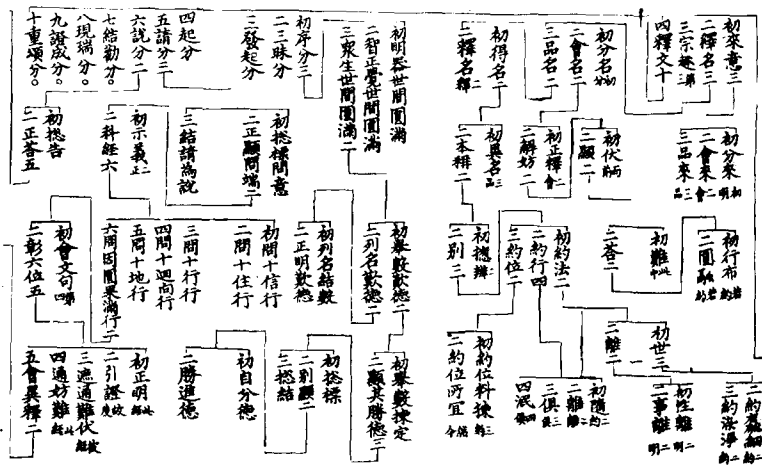 初來意三
二釋名三
三宗趣第三
四釋文十
初分名
二會名二
三品名二
初得名二
二釋名二
初明器世間圓滿
二智正覺世間圓滿
三衆生世間圓滿二
初序分三
二三昧分
三發起分
四起分
五請分三
六說分二
七結勸分。
八現瑞分。
九證成分。
十重頌分。
初分來初明
二會來二會
三品來三品
初伏難
二顯二
初正釋二會
二解妨二
初異名三品
二本釋二
初總標問意
二正顯問端二
三結請為說
初示義正
二科經六
初總告
二正答五
初行布若約
二圓融若約
初難此中
二答二
初約法二
二約行四
三約位二
初總辨二
二別三
初舉數歎德二
二列名歎德二
初列名結數
二正明歎德
初問十信行
二問十住行
三問十行行
四問十迴向行
五問十地行
六問因圓果滿行二
初會文句四第
二彰六位五
初性離二明
二事離二明
初世二
二離二
初隨
二離
三俱
四泯
初約位料揀
二約位所宜
初舉數揀定
二顯其勝德三
初總標
二別顯二
三總結
初自分德
二勝進德
初正明
二引證
三遮通難伏
四通妨難
五會異釋二